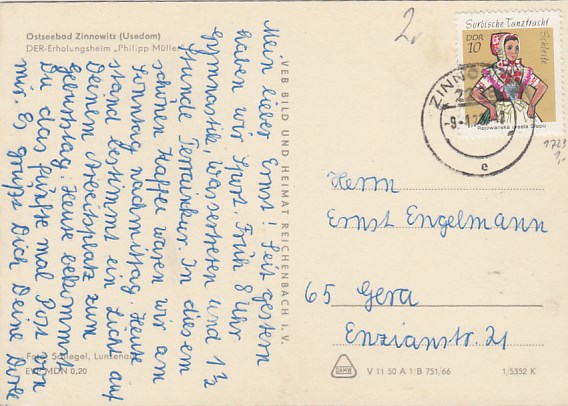 Ostseebad Zinnowitz (Usedom)
DER-Erholungsheim „Philipp Mülle
Mein lieber Ernst! Seit gestern
haben wir Sport. Früh 8 Uhr
Gymnastik, Wassertreten und 1½
Stunde Terrainkur. In diesem
schönen Kaffee waren wir am
Sonntag nachmittag. Heute
stand bestimmt ein Licht auf
Deinem Arbeitsplatz zum
Geburtstag. Heute bekommst
Du das fünfte mal Post von
mir. Es grüßt Dich Deine
Foto: Schlegel, Luntenau
EVP MDN 0,20
VEB BILD UND HEIMAT REICHENBACH I. V.
2,-
Sorbische Tanztracht
Schleife
DDR
10
ZINNO
-9.-1.72
e
1723
1,-
Herrn
Ernst Engelmann
65 Gera
Enzianstr. 21
V 11 50 A 1/B 751/66
1/5352 K